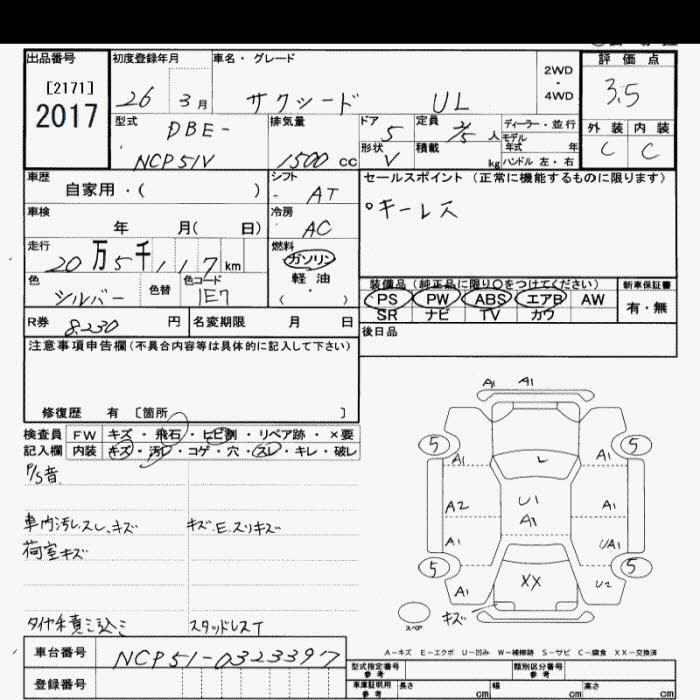 出品番号 初度登録年月 車名・グレード 2WD・4WD 評価点
[2171]
2017
26 3月 サクシード UL 3.5
型式 DBE-
NCP51V
排気量 1500 cc
ドア 5 定員 2/5 人 ディーラー・並行
モデル年式 年
形状 V 積載 kg ハンドル 左・右
外装 内装
C C
車歴 自家用・( )
シフト AT
セールスポイント(正常に機能するものに限ります)
○キーレス
車検 年 月( 日)
冷房 AC
走行 20万5千117km
燃料 ガソリン
軽油
( ・ )
色 シルバー 色替 色コード 1E7
装備品(純正品に限り○をつけてください) 新車保証書
PS PW ABS エアB AW 有・無
SR ナビ TV カワ
R券 8,230 円 名変期限 月 日
後日品
注意事項申告欄(不具合内容等は具体的に記入して下さい)
修復歴 有 [箇所 ]
検査員 FW キズ・飛石・ヒビ割・リペア跡・×要
記入欄 内装 キズ・汚レ・コゲ・穴・スレ・キレ・破レ
P/S音
車内汚レ.スレ.キズ キズ.E.スリキズ
荷室キズ
タイヤ積ミ込ミ スタッドレスT
A1 A1
5 5
A1 L A1
A2 U1 A1
A1
A1 UA1
5 5
XX
A1 U2
スペア キズ
A-キズ E-エクボ U-凹み W-補修跡 S-サビ C-腐食 XX-交換済
車台番号 NCP51-0323397
登録番号
型式指定番号 参考 類別区分番号 参考
車庫証明用 参考 長さ cm 幅 cm 高さ cm